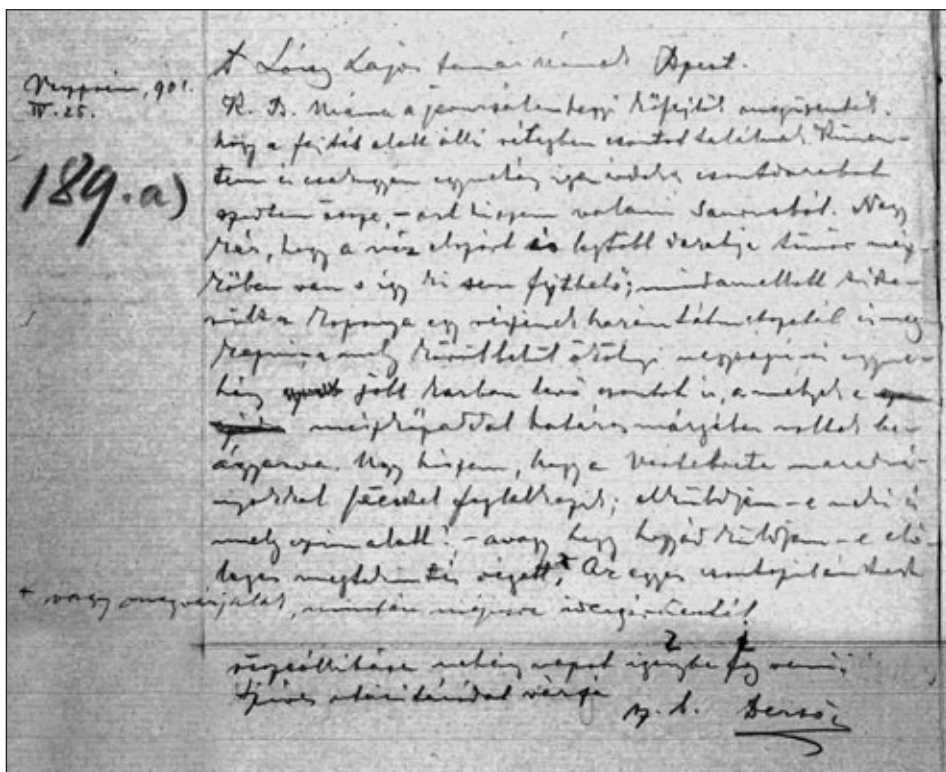 Veszprém, 901.
IV. 25.
189.a)
Lóczy Lajos tanár úrnak Bpest.
K. B. a jeruzsálemhegyi kőfejtől megüzenték,
hogy a fejtés alatt álli rétegben csontot találnak. Kimen-
tem és csakugyan egynehány igen érdekes csontdarabot
szedtem össze, – azt hiszem valami Saurustól. Nagy
kár, hogy a váz elszórt és legtöbb darabja tömör mész
kőben van s így ki sem fejthető; mindamellett sike-
rült a koponya egy részének harántátmetszetét is meg
kapni, a mely körülbelül ökölnyi nagyságú és egyne-
hány jött karban levő csontot is, a melyek a
mészkőpaddal határos márgába voltak be-
ágyazva. Úgy hiszem, hogy a Vertebrata maradvá-
nyokkal foglalkozik; elküldjem-e neki és
mely czím alatt? – avagy hogy hozzád küldjem-e elő-
leges megtekintés végett, + Az egyes csontok
+ vagy megvárjalak, miután május
összeállítása néhány napot igénybe fog venni.
Szíves utasításodat várja
Dezső